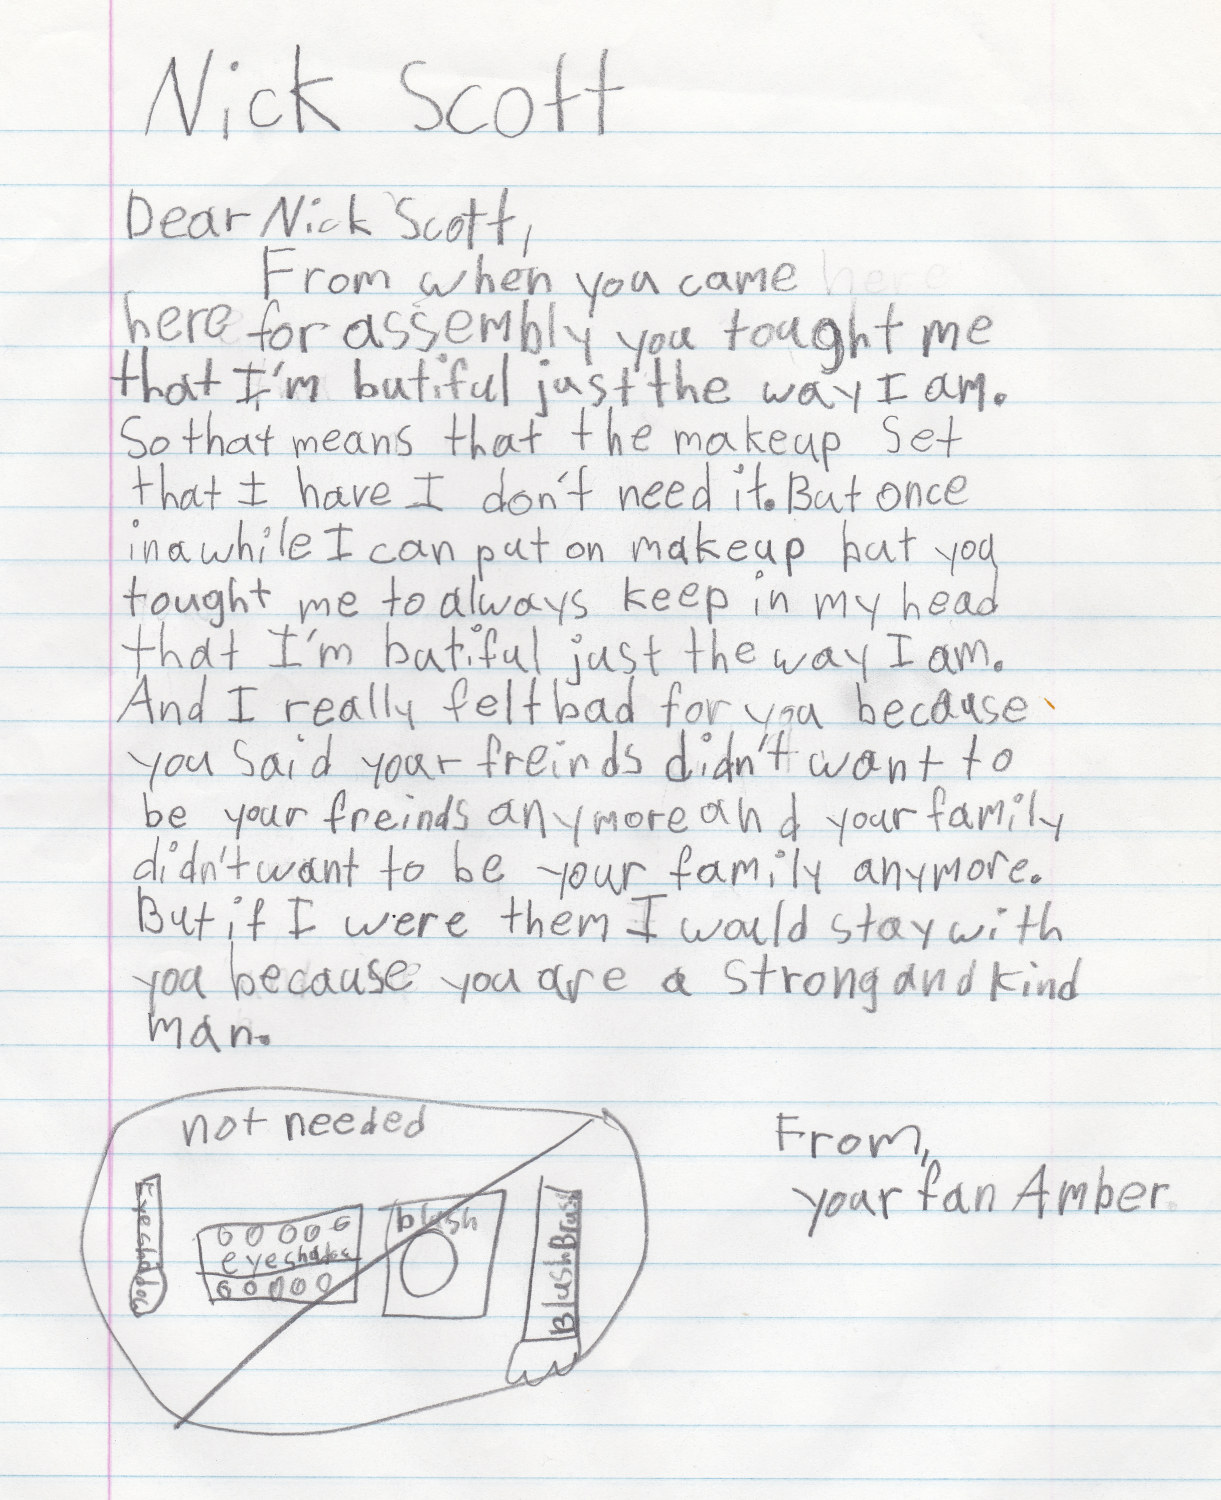 Nick Scott
Dear Nick Scott,
From when you came here
here for assembly you tought me
that I'm butiful just the way I am.
So that means that the makeup set
that I have I don't need it. But once
in a while I can put on makeup but you
tought me to always keep in my head
that I'm butiful just the way I am.
And I really felt bad for you because
you said your freinds didn't want to
be your freinds anymore and your family
didn't want to be your family anymore.
But if I were them I would stay with
you because you are a strong and kind
man.
not needed
Eyeshadoe
eyeshadoe
blush
Blush Brush
From,
your fan Amber